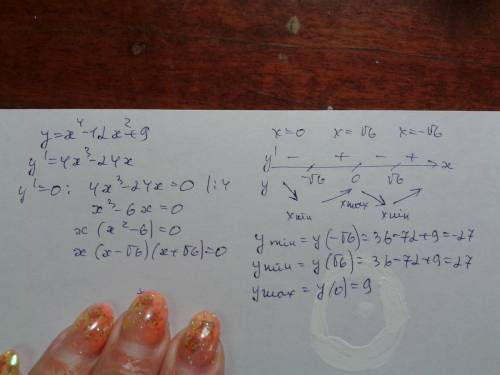 y=x⁴-12x²+9
y'=4x³-24x
y'=0: 4x³-24x=0 |:4
x³-6x=0
x(x²-6)=0
x(x-√6)(x+√6)=0
x=0 x=√6 x=-√6
y' - + - + x
y -√6 0 √6
xmin xmax xmin
ymin=y(-√6)=36-72+9=-27
ymin=y(√6)=36-72+9=27
ymax=y(0)=9